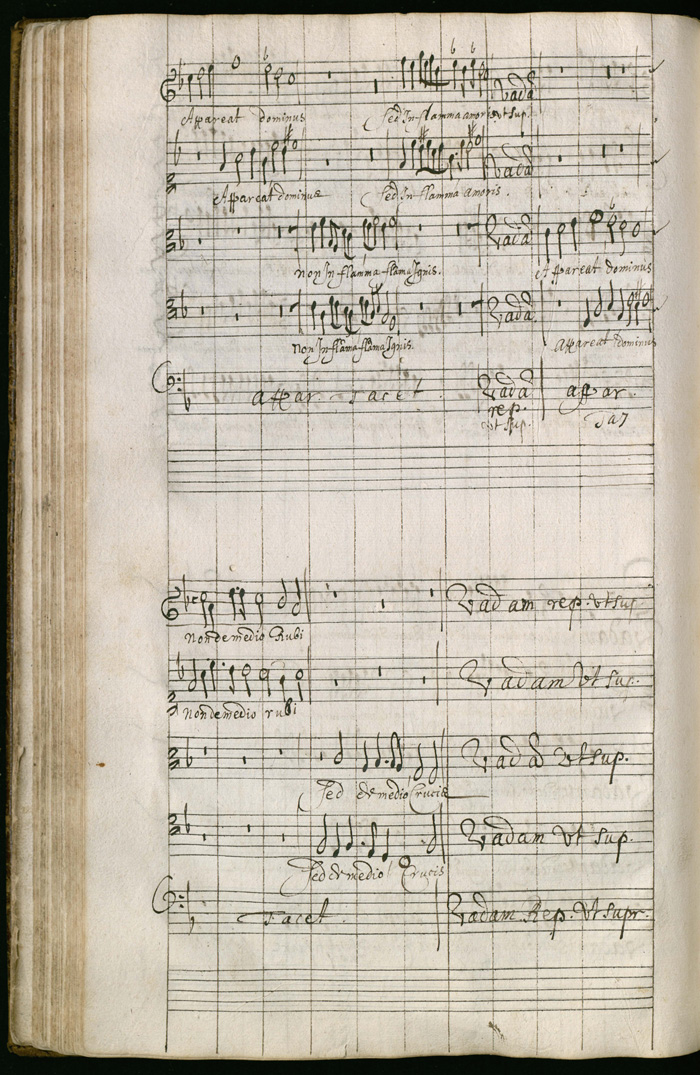 Appareat dominus Sed In flamma amoris Vadã vt sup.
Appareat dominus Sed In flamma amoris. Vadã
non In flamma flãma Ignis. Vadã Appareat dominus
non In flãma flãma Ignis. Vadã. appareat dominus
appar. Tacet. Vadã rep. vt sup. appar. Taz
Non de medio Rubi Vadam rep. vt sup.
Non de medio rubi Vadam Vt sup.
Sed de medio Crucis Vadã Vt sup.
Sed de medio Crucis Vadam Vt sup.
Tacet. Vadam Rep. Vt supr.